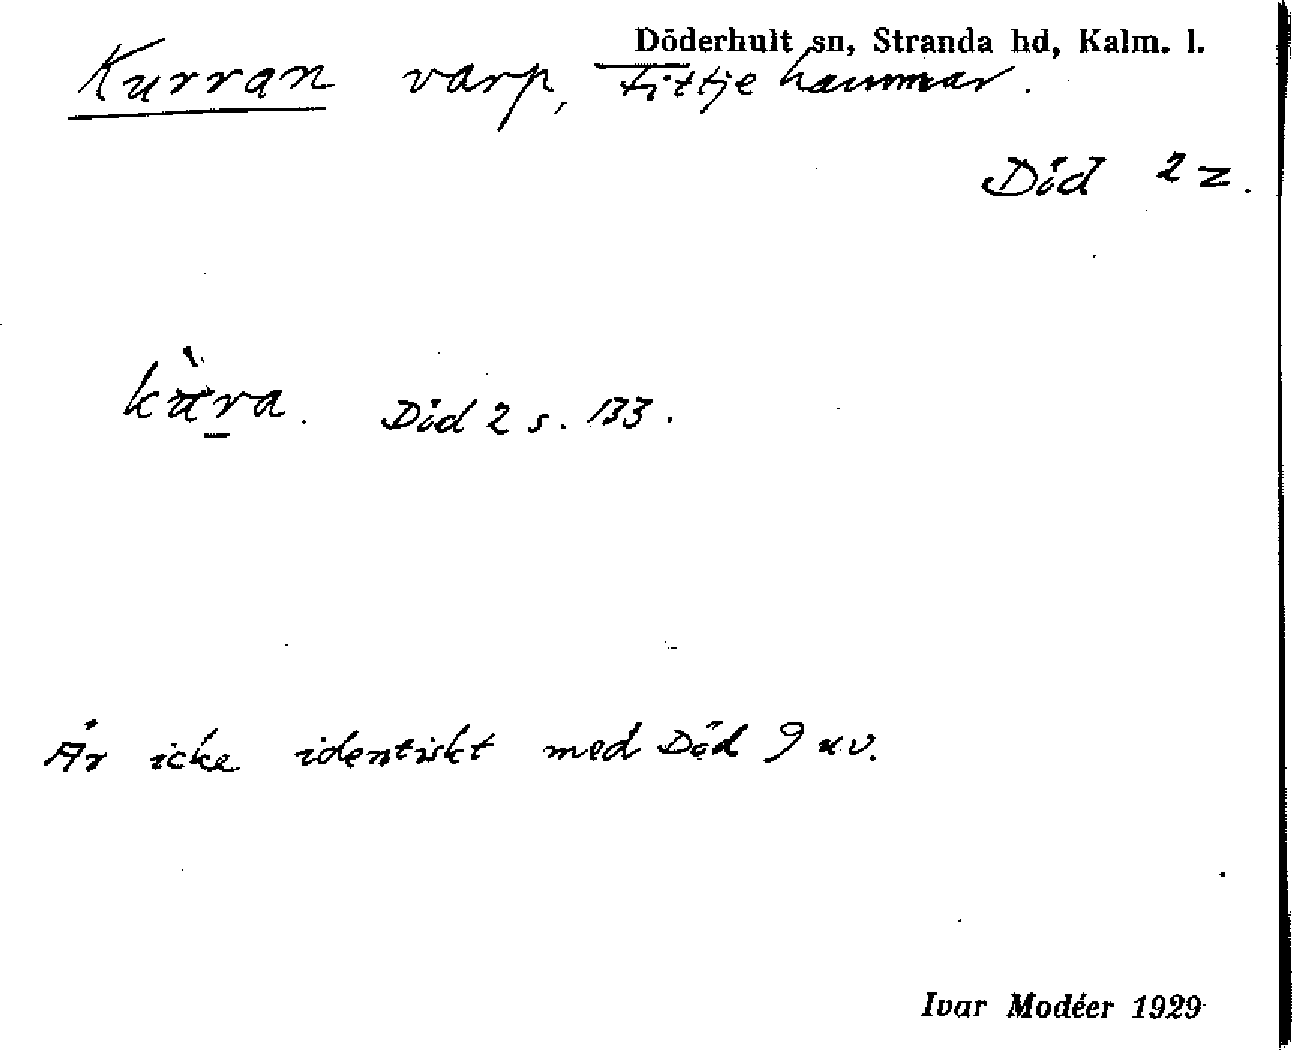 Döderhult sn, Stranda hd, Kalm. l.
Kurran varp, Fittjehammar.
Död 2 z.
kùra. Död 2 s. 133.
Är icke identiskt med Död 9 uv.
Ivar Modéer 1929